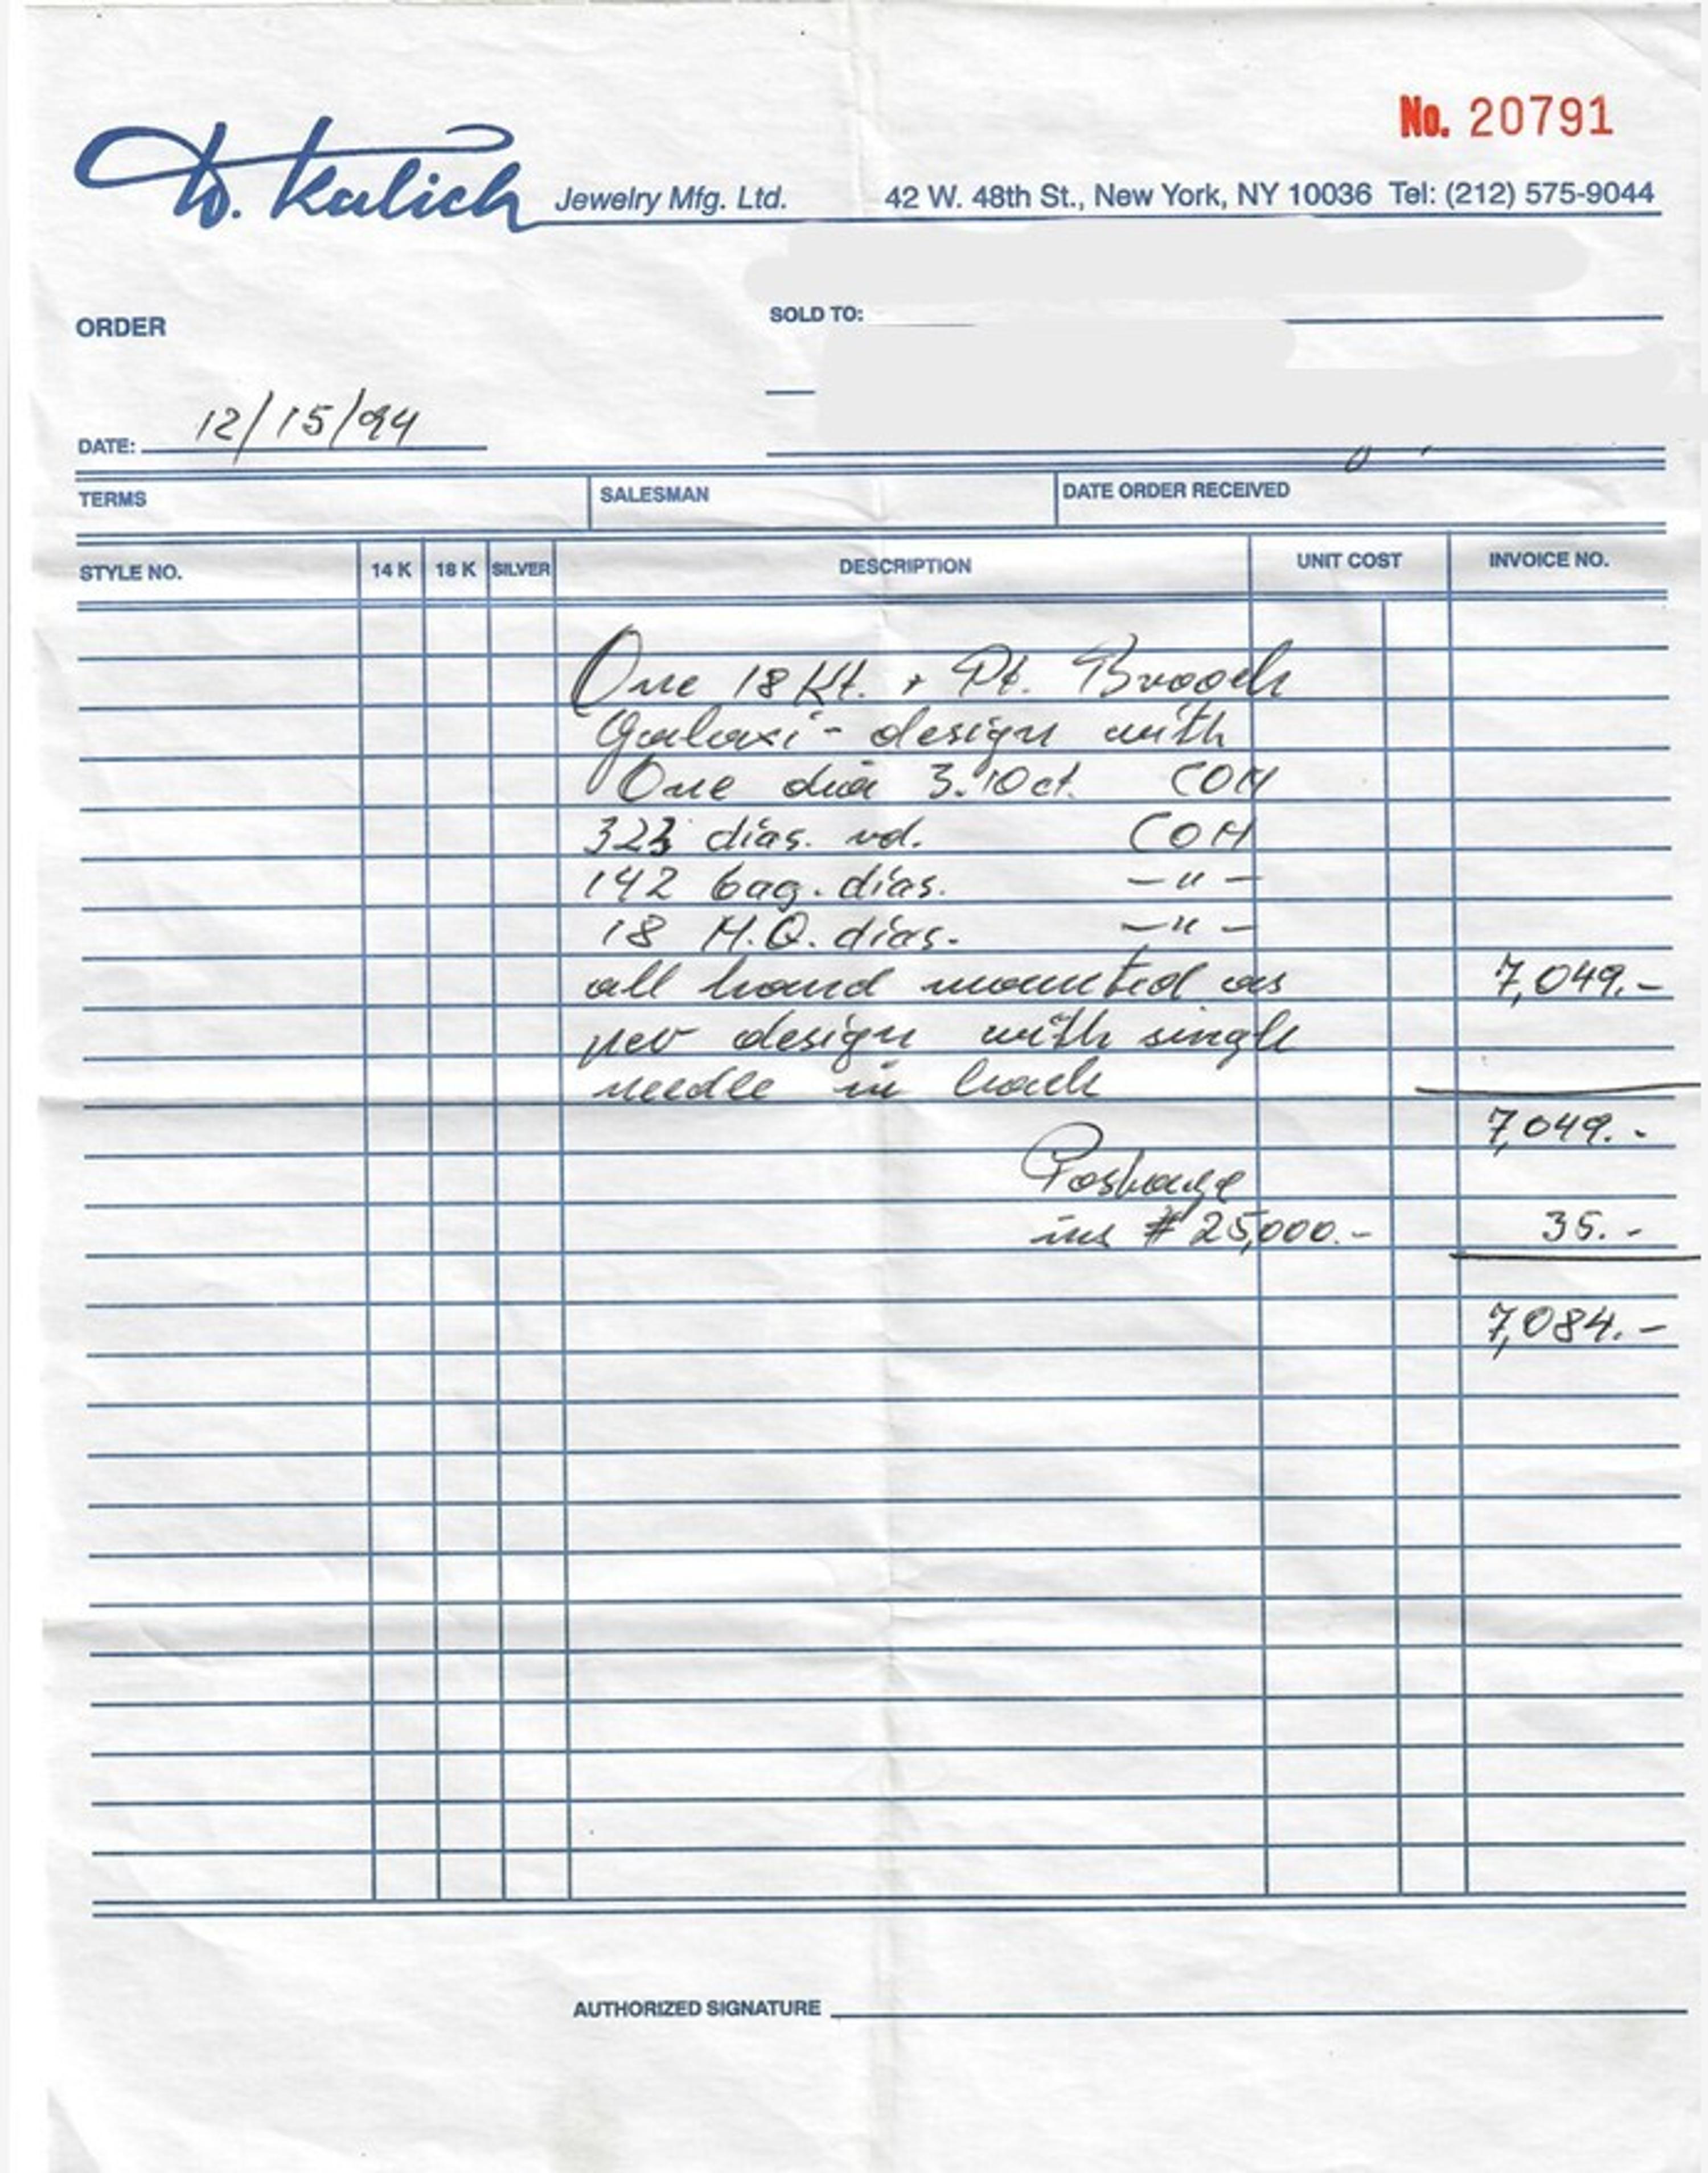 No. 20791
W. Kulich Jewelry Mfg. Ltd. 42 W. 48th St., New York, NY 10036 Tel: (212) 575-9044
ORDER
SOLD TO:
DATE: 12/15/94
TERMS SALESMAN DATE ORDER RECEIVED
STYLE NO. 14 K 18 K SILVER DESCRIPTION UNIT COST INVOICE NO.
One 18 Kt. + Pt. Brooch
Galaxi - design with
One dia 3.10 ct. COM
323 dias. rd. COM
142 bag. dias. - " -
18 M.Q. dias. - " -
all hand mounted as 7,049.-
new design with single
needle in back
7,049.-
Postage
ins $ 25,000.- 35.-
7,084.-
AUTHORIZED SIGNATURE